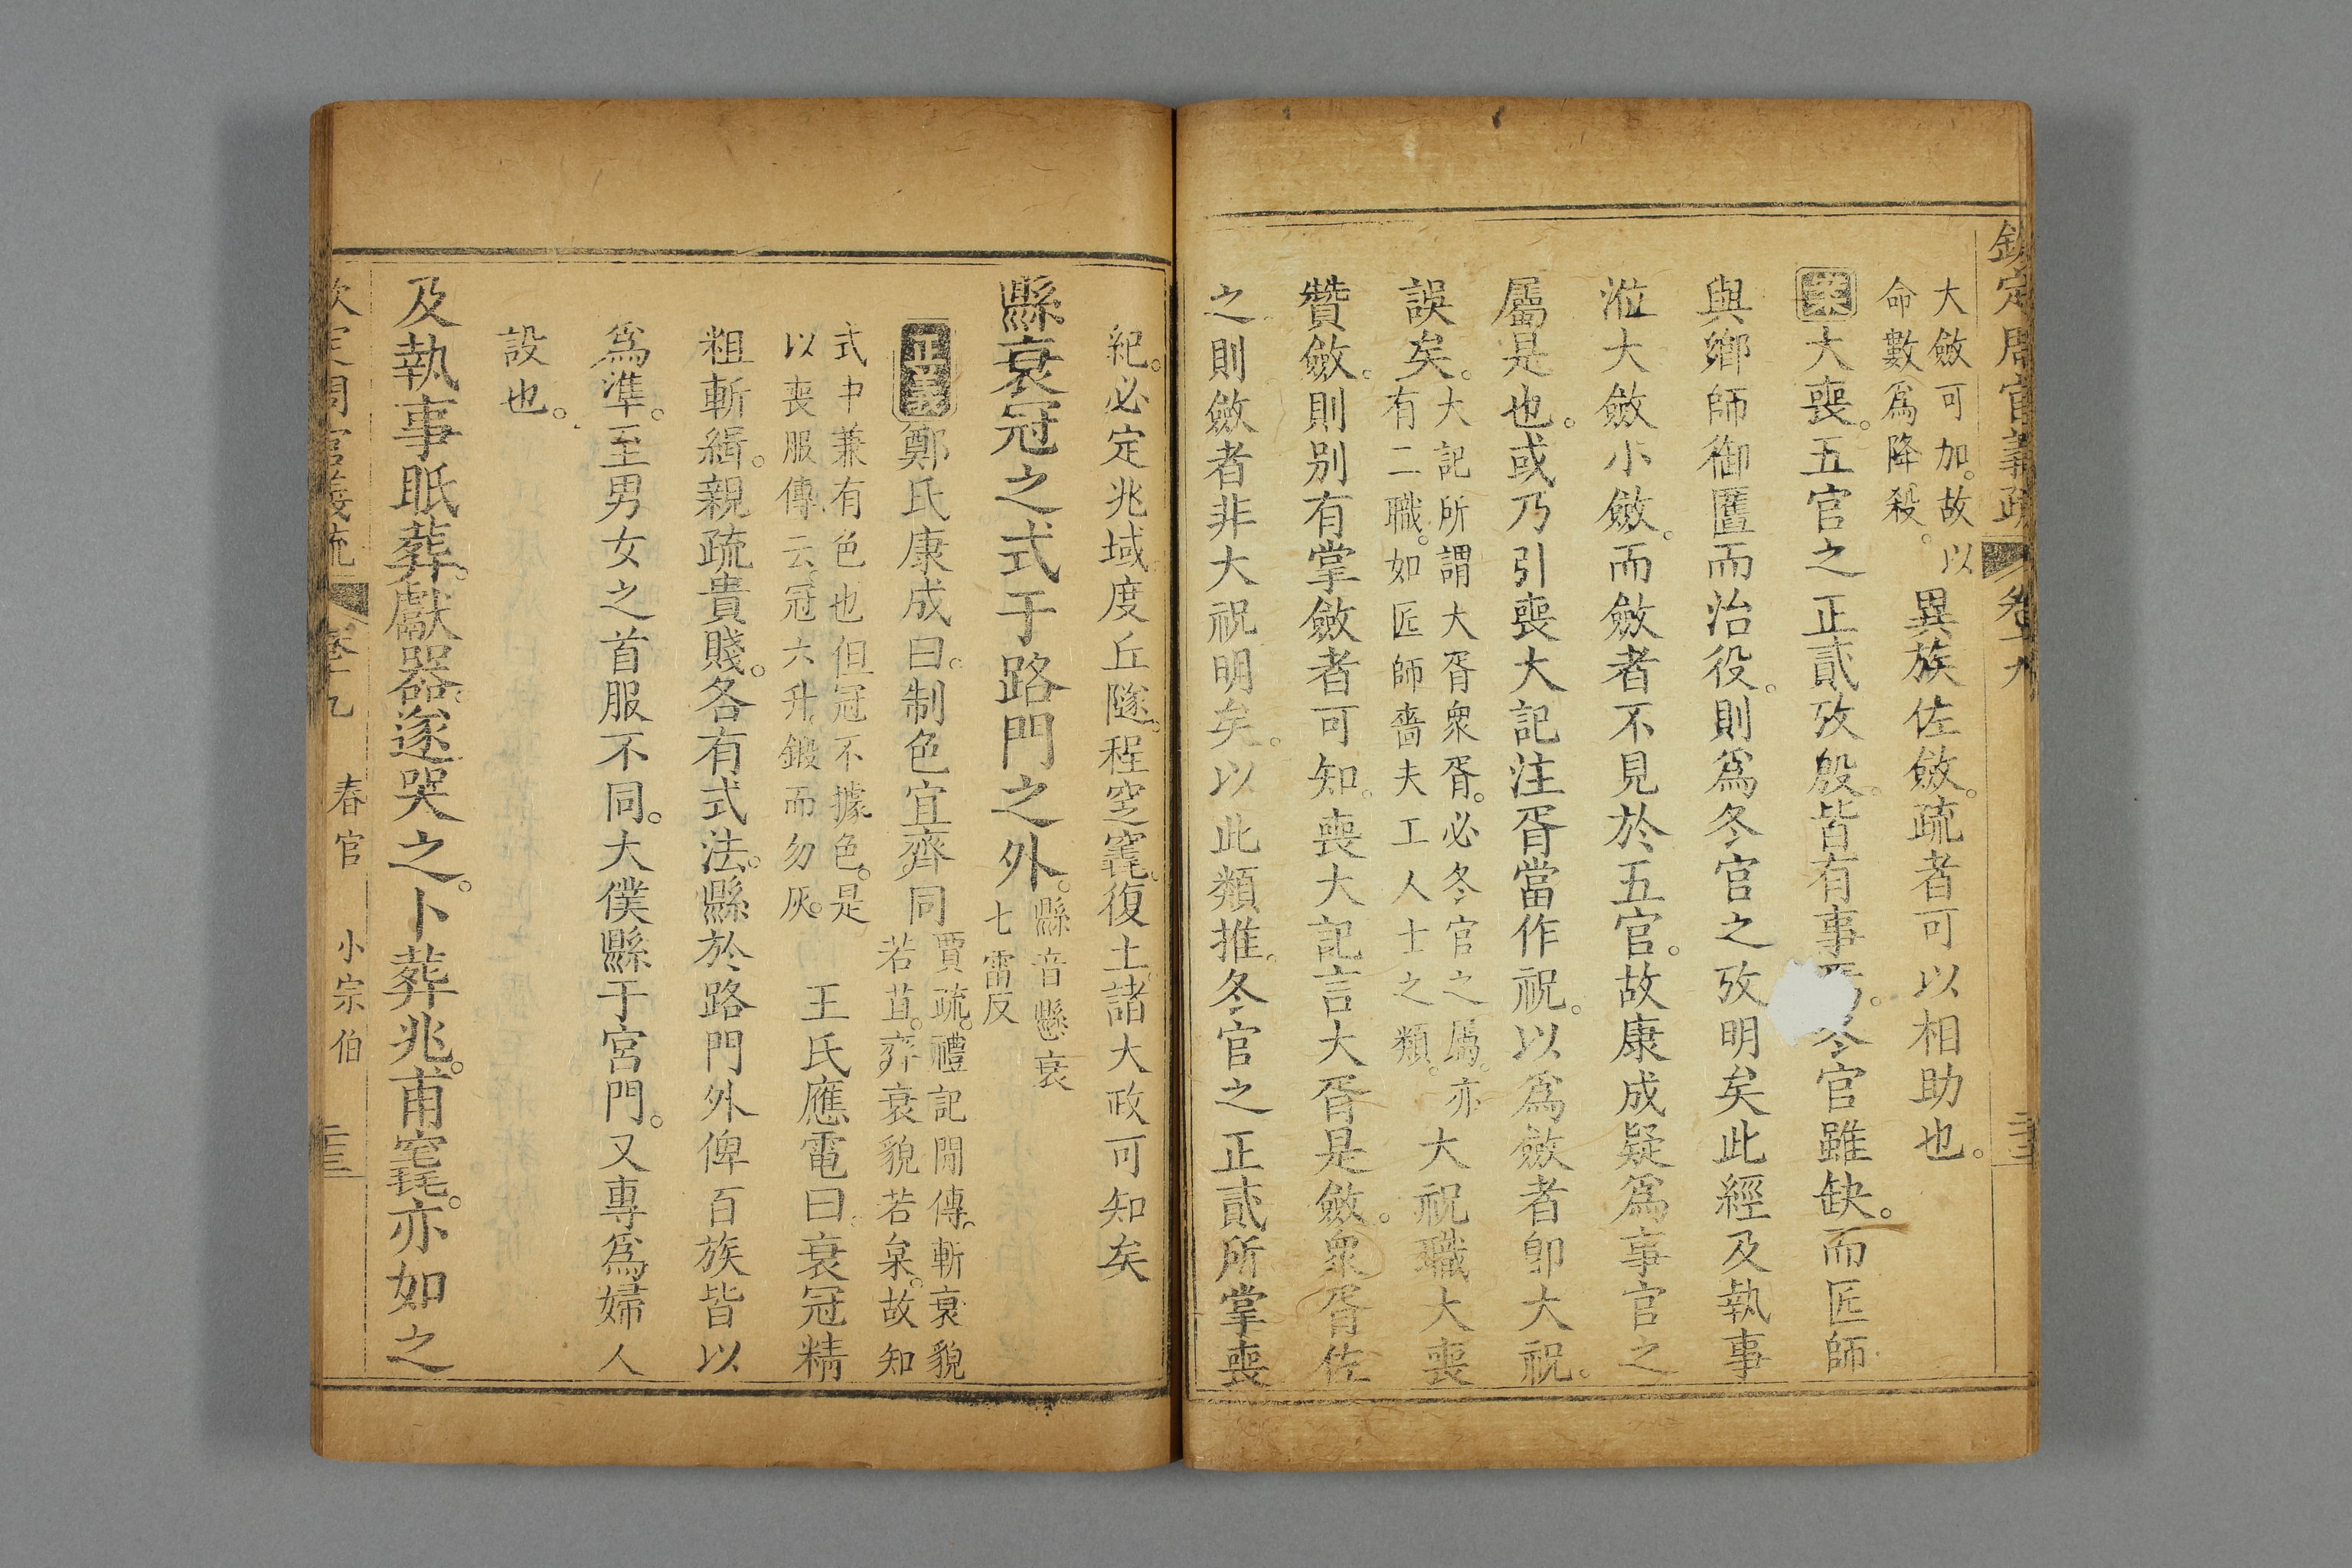 欽定周官義疏 卷十九
大斂可加。故以
命數爲降殺。
異族佐斂。疏者可以相助也。
案大喪。五官之正貳攷殷。皆有事焉。冬官雖缺。而匠師
與鄉師御匶而治役。則爲冬官之攷明矣此經及執事
涖大斂小斂。而斂者不見於五官。故康成疑爲事官之
屬是也。或乃引喪大記注胥當作祝。以爲斂者卽大祝。
誤矣。
大記所謂大胥衆胥。必冬官之屬。亦
有二職。如匠師嗇夫工人士之類。
大祝職大喪
贊斂。則別有掌斂者可知。喪大記言大胥是斂。衆胥佐
之則斂者非大祝明矣。以此類推。冬官之正貳所掌喪
紀。必定兆域。度丘隧。程窆竁。復土。諸大政可知矣
縣衰冠之式于路門之外。
縣音懸衰
七雷反
正義鄭氏康成曰。制色宜齊同
賈疏。禮記閒傳。斬衰貌
若苴。齊衰貌若枲。故知
式中兼有色也但冠不據色。是
以喪服傳云。冠六升。鍛而勿灰。
王氏應電曰。衰冠精
粗斬緝。親疏貴賤。各有式法。縣於路門外俾百族皆以
爲準。至男女之首服不同。大僕縣于宮門。又專爲婦人
設也。
及執事眡葬。獻器。遂哭之。卜葬兆。甫竁。亦如之
欽定周官義疏 卷十九 春官 小宗伯